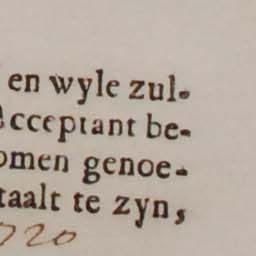 en wyle zul-
Acceptant be-
omen genoe-
taalt te zyn,
720